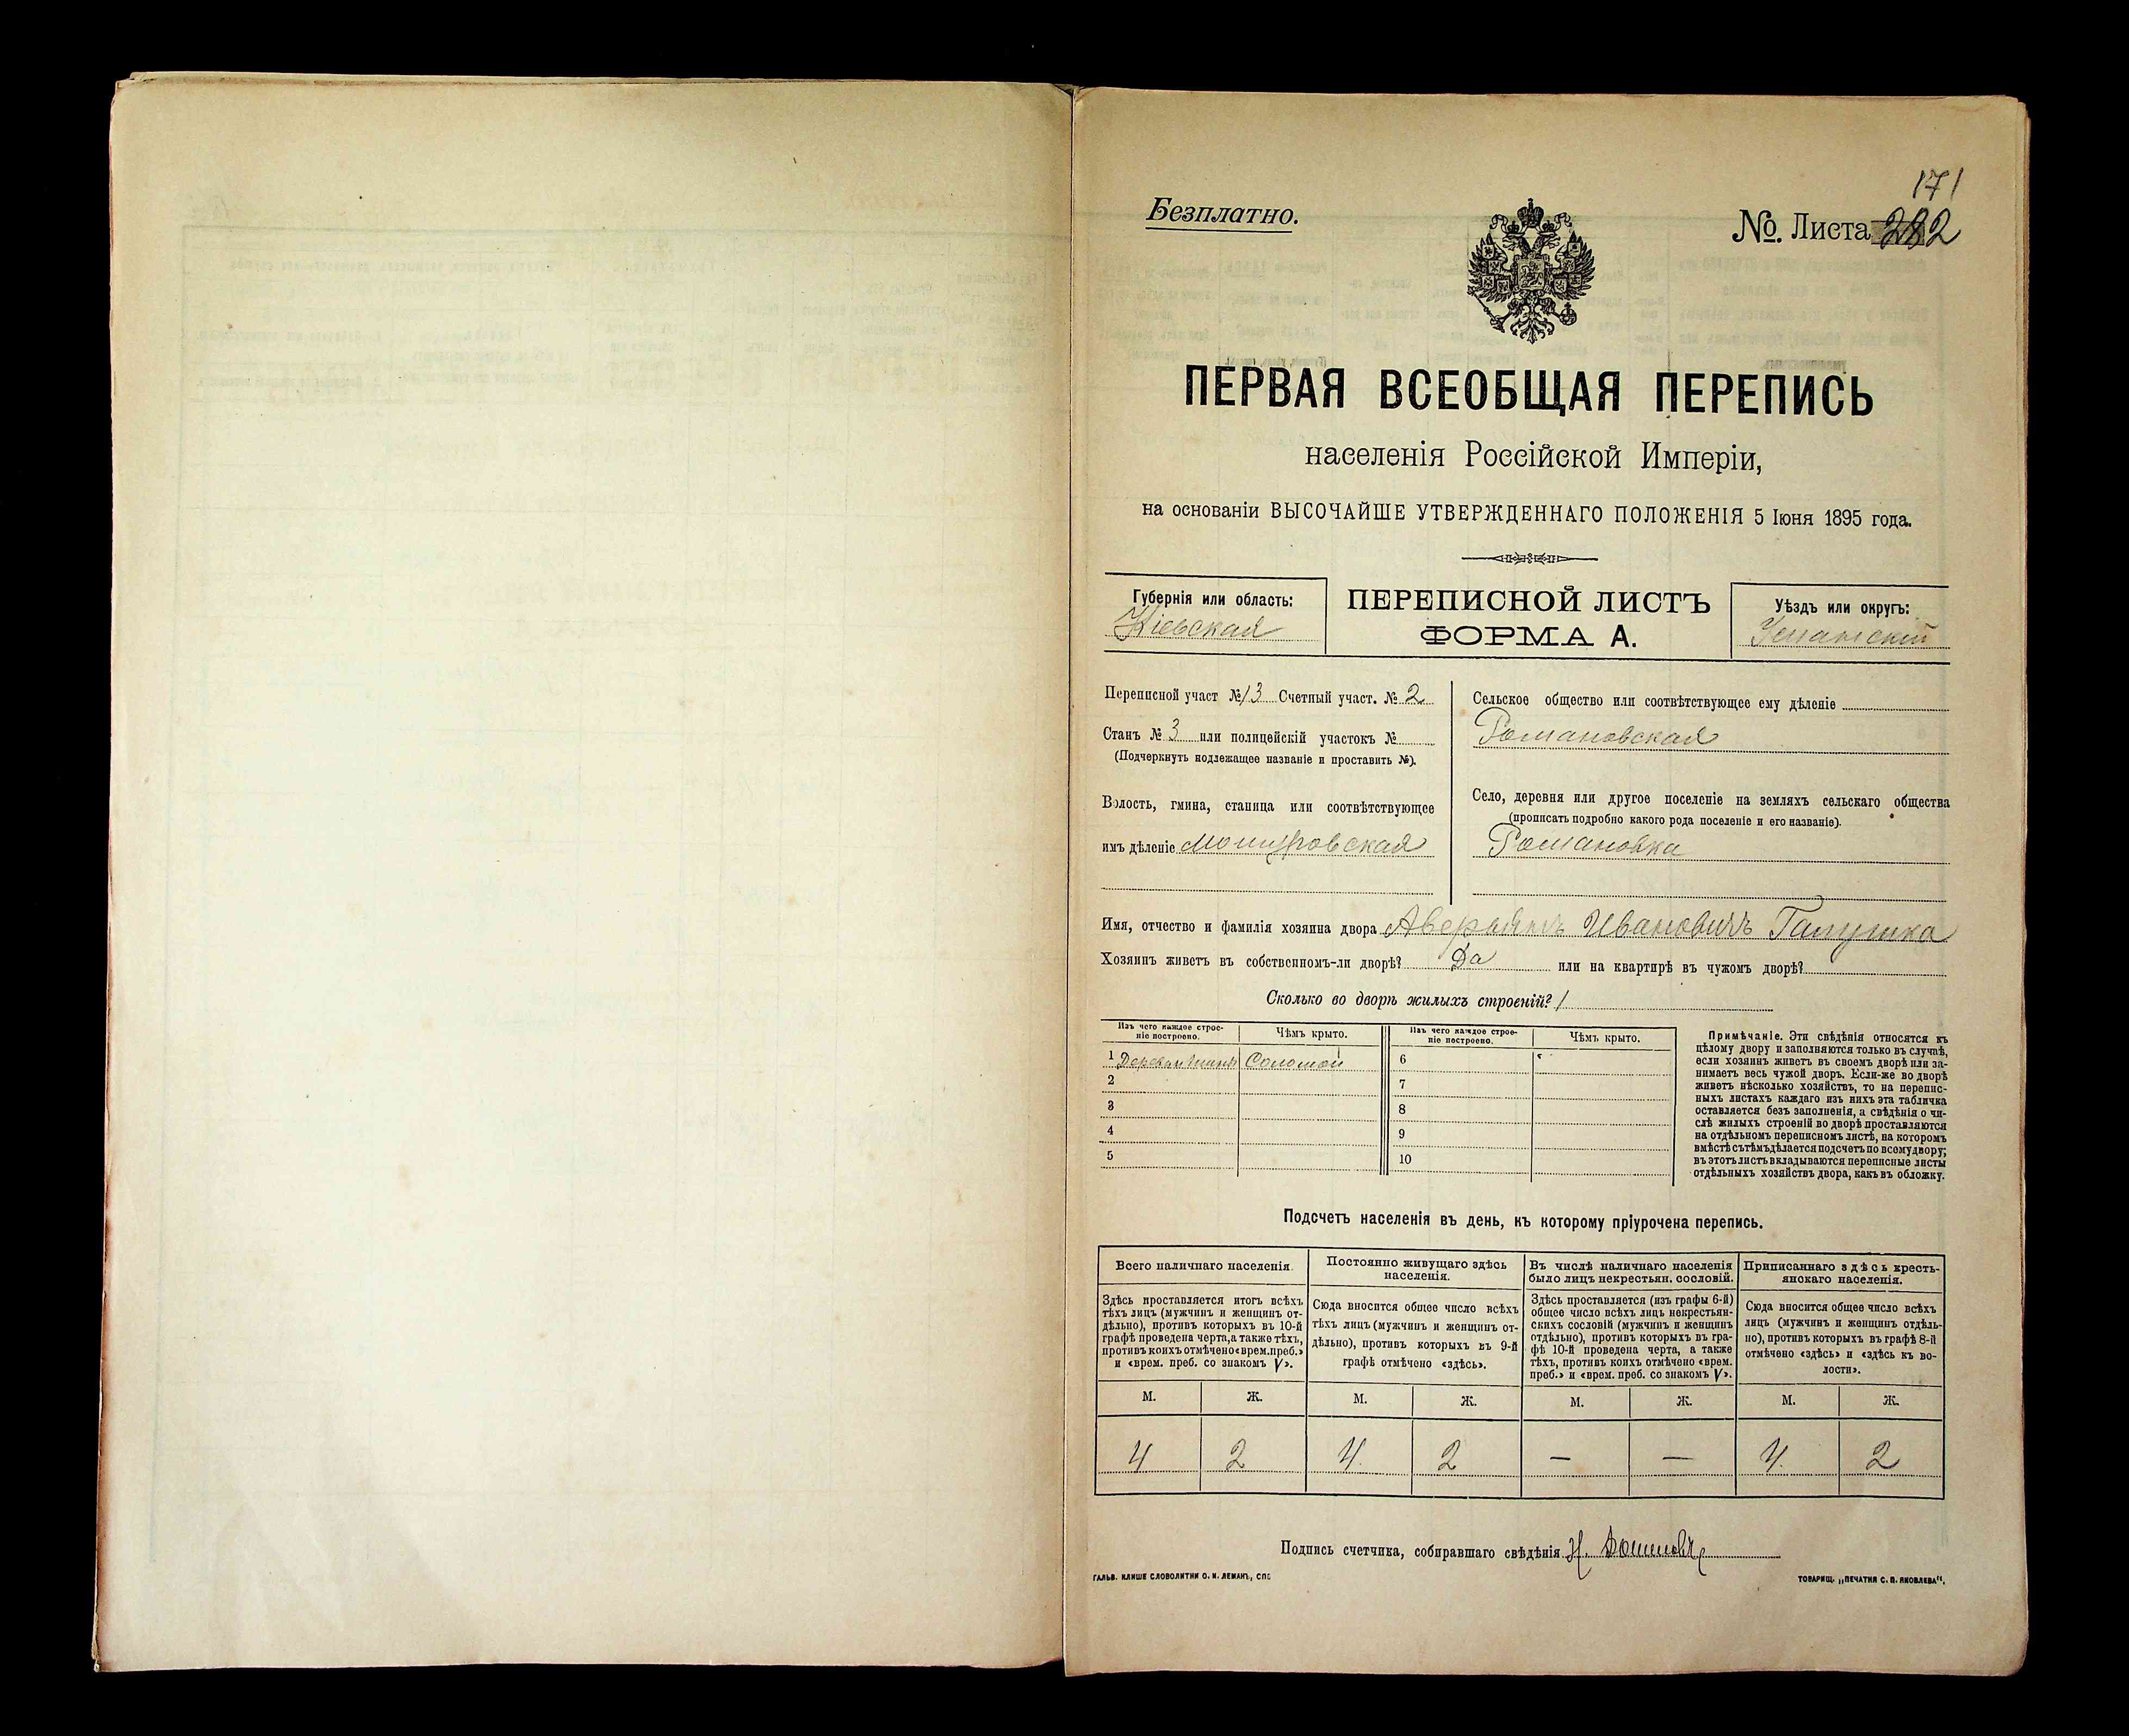 171
Безплатно.
№. Листа 282
ПЕРВАЯ ВСЕОБЩАЯ ПЕРЕПИСЬ
населенія Россійской Имперіи,
на основаніи ВЫСОЧАЙШЕ УТВЕРЖДЕННАГО ПОЛОЖЕНІЯ 5 Іюня 1895 года.
Губернія или область:
Кіевская
ПЕРЕПИСНОЙ ЛИСТЪ
ФОРМА А.
Уѣздъ или округъ:
Уманскій
Переписной участ № 13 Счетный участ. № 2
Станъ № 3 или полицейскій участокъ №
(Подчеркнуть подлежащее названіе и проставить №).
Волость, гмина, станица или соотвѣтствующее
имъ дѣленіе
Сельское общество или соотвѣтствующее ему дѣленіе
Романовская
Село, деревня или другое поселеніе на земляхъ сельскаго общества
(прописать подробно какого рода поселеніе и его названіе).
Романовка
Имя, отчество и фамилія хозяина двора Аверьянъ Ивановичъ Галушка
Хозяинъ живетъ въ собственномъ-ли дворѣ? Да или на квартирѣ въ чужомъ дворѣ?
Сколько во дворѣ жилыхъ строеній? 1
Изъ чего каждое строе-
ніе построено.
Чѣмъ крыто.
Изъ чего каждое строе-
ніе построено.
Чѣмъ крыто.
1 Соломой 6
2 7
3 8
4 9
5 10
Примѣчаніе. Эти свѣдѣнія относятся къ
цѣлому двору и заполняются только въ случаѣ,
если хозяинъ живетъ въ своемъ дворѣ или за-
нимаетъ весь чужой дворъ. Если-же во дворѣ
живетъ нѣсколько хозяйствъ, то на перепис-
ныхъ листахъ каждаго изъ нихъ эта табличка
оставляется безъ заполненія, а свѣдѣнія о чи-
слѣ жилыхъ строеній во дворѣ проставляются
на отдѣльномъ переписномъ листѣ, на которомъ
вмѣстѣ съ тѣмъ дѣлается подсчетъ по всему двору;
въ этотъ листъ вкладываются переписные листы
отдѣльныхъ хозяйствъ двора, какъ въ обложку.
Подсчетъ населенія въ день, къ которому пріурочена перепись.
Всего наличнаго населенія.
Здѣсь проставляется итогъ всѣхъ
тѣхъ лицъ (мужчинъ и женщинъ от-
дѣльно), противъ которыхъ въ 10-й
графѣ проведена черта, а также тѣхъ,
противъ коихъ отмѣчено «врем. преб.»
и «врем. преб. со знакомъ V».
Постоянно живущаго здѣсь
населенія.
Сюда вносится общее число всѣхъ
тѣхъ лицъ (мужчинъ и женщинъ от-
дѣльно), противъ которыхъ въ 9-й
графѣ отмѣчено «здѣсь».
Въ числѣ наличнаго населенія
было лицъ некрестьян. сословій.
Здѣсь проставляется (изъ графы 6-й)
общее число всѣхъ лицъ некрестьян-
скихъ сословій (мужчинъ и женщинъ
отдѣльно), противъ которыхъ въ гра-
фѣ 10-й проведена черта, а также
тѣхъ, противъ коихъ отмѣчено «врем.
преб.» и «врем. преб. со знакомъ V».
Приписаннаго здѣсь кресть-
янскаго населенія.
Сюда вносится общее число всѣхъ
лицъ (мужчинъ и женщинъ отдѣль-
но), противъ которыхъ въ графѣ 8-й
отмѣчено «здѣсь» и «здѣсь къ во-
лости».
М. Ж. М. Ж. М. Ж. М. Ж.
4 2 4 2 — — 4 2
Подпись счетчика, собиравшаго свѣдѣнія
ГАЛЬВ. КЛИШЕ СЛОВОЛИТНИ О. И. ЛЕМАНЪ, СПБ
ТОВАРИЩ. „ПЕЧАТНЯ С. П. ЯКОВЛЕВА“.